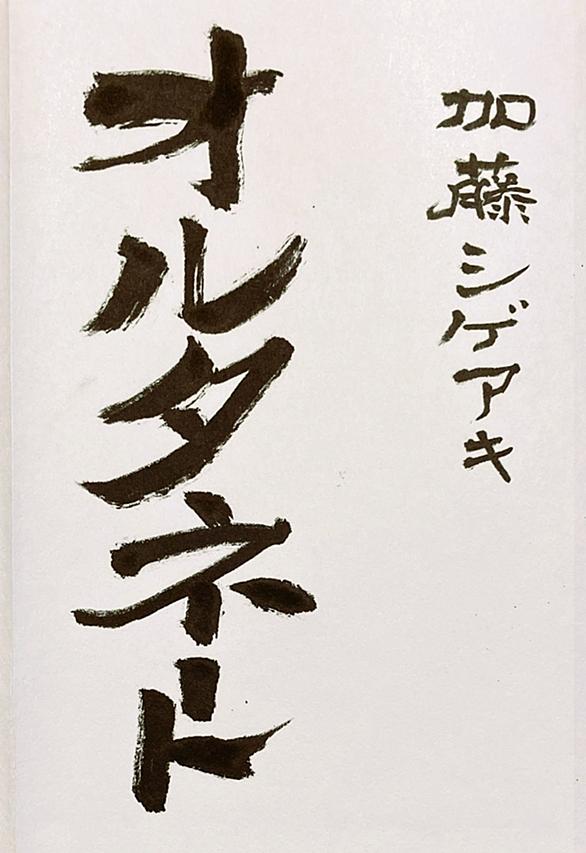 加藤シゲアキ
オルタネート